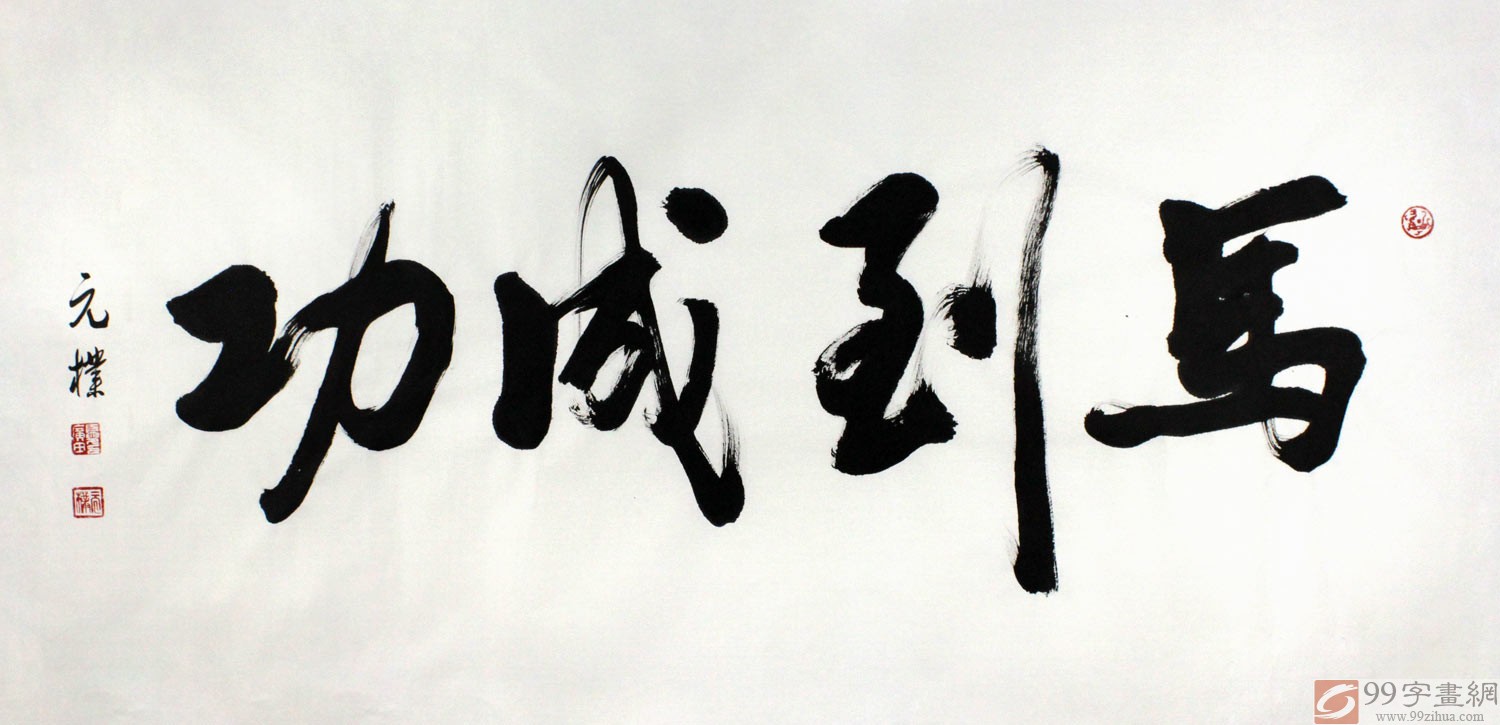 馬到成功
元樸
99字畫網
www.99zihua.com